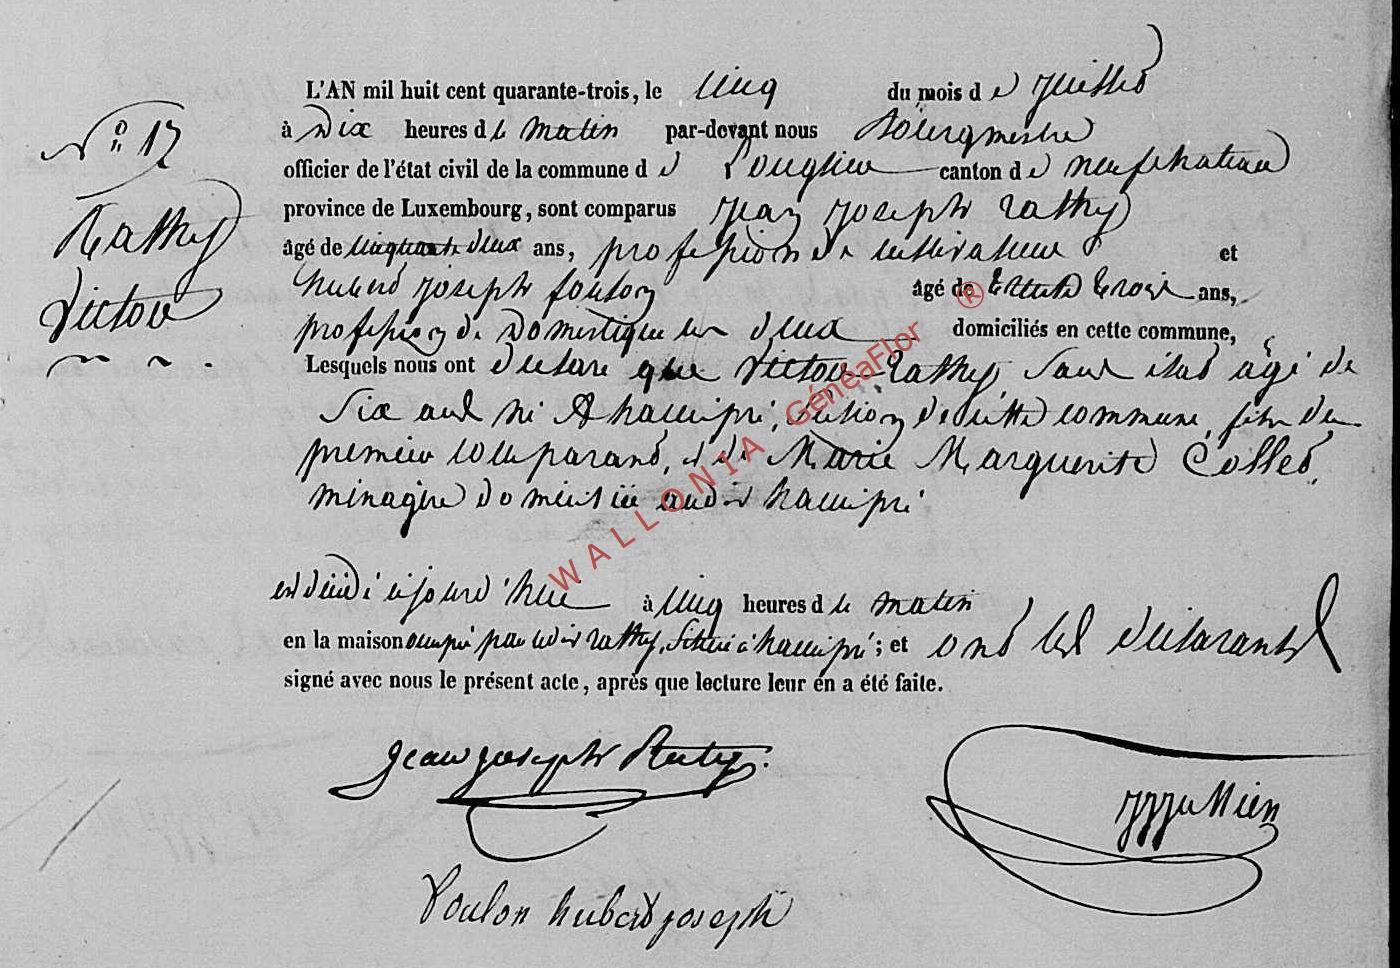 L'AN mil huit cent quarante-trois, le cinq du mois de juillet
N° 17 à dix heures du matin par-devant nous Bourgmestre
officier de l'état civil de la commune de Longlier canton de neufchateau
Rathy province de Luxembourg, sont comparus jean joseph rathy
âgé de cinquante deux ans, profession de cultivateur et
Victor hubert joseph foulon âgé de trente trois ans,
profession de domestique les deux domiciliés en cette commune,
Lesquels nous ont déclaré que victor Rathy, sans état agé de
six ans né A hamipré, section de cette commune, fils du
premier comparant, et de Marie Marguerite Collet,
ménagère domiciliée audit hamipré
est décédé aujourd'hui à cinq heures du matin
en la maison occupé par ledit rathy, située à hamipré; et ont les déclarants
signé avec nous le présent acte, après que lecture leur en a été faite.
jean joseph Raty.
foulon hubert joseph
WALLONIA GéneaFlor ®